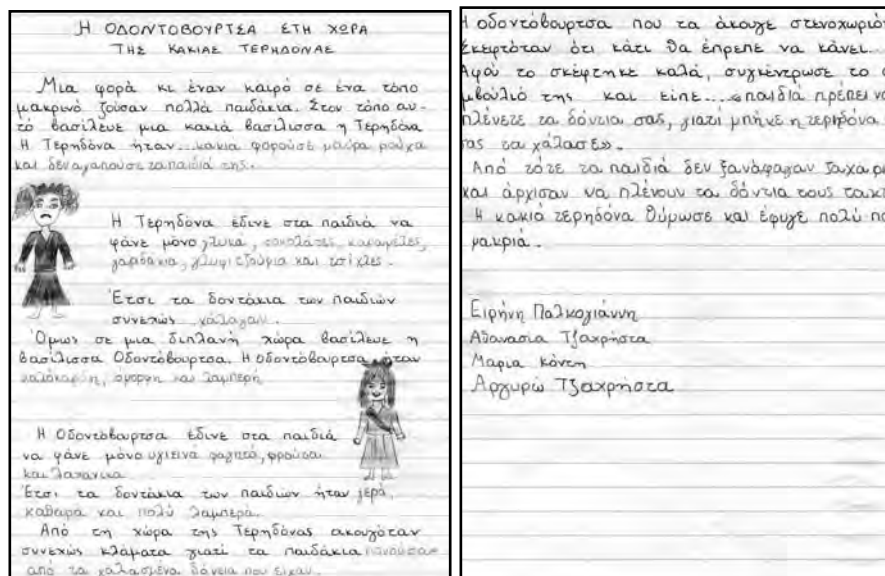 Η ΟΔΟΝΤΟΒΟΥΡΤΣΑ ΣΤΗ ΧΩΡΑ
ΤΗΣ ΚΑΚΙΑΣ ΤΕΡΗΔΟΝΑΣ
Μια φορά κι έναν καιρό σε ένα τόπο
μακρινό ζούσαν πολλά παιδάκια. Στον τόπο αυ-
τό βασίλευε μια κακιά βασίλισσα η Τερηδόνα
Η Τερηδόνα ήταν...κακια φορούσε μαύρα ρούχα
και δεν αγαπούσε τα παιδιά της.
Η Τερηδόνα έδινε στα παιδιά να
φάνε μόνο γλυκα, σοκολάτες, καραμέλες,
γαριδάκια, γλυφιτζούρια και τσίχλες.
Έτσι τα δοντάκια των παιδιών
συνεχώς χάλαγαν.
Όμως σε μια διπλανή χώρα βασίλευε η
βασίλισσα Οδοντόβουρτσα. Η Οδοντόβουρτσα ήταν
καλόκαρδη, όμορφη και λαμπερή
Η Οδοντόβουρτσα έδινε στα παιδιά
να φάνε μόνο υγιεινά φαγητά, φρούτα
και λαχανικα
Έτσι τα δοντάκια των παιδιών ήταν γερά,
καθαρά και πολύ λαμπερά.
Από τη χώρα της Τερηδόνας ακουγόταν
συνεχώς κλάματα γιατί τα παιδάκια πονούσαν
από τα χαλασμένα δόντια που είχαν.
Η οδοντόβουρτσα που τα άκουγε
Σκεφτόταν ότι κάτι θα έπρεπε να κάνει...
Αφού το σκέφτηκε καλά, συγκέντρωσε το
μβούλιό της και είπε...«παιδιά πρέπει να
πλένετε τα δόντια σας, γιατί μπήκε η τερηδόνα
σας τα χάλασε».
Από τότε τα παιδιά δεν ξανάφαγαν
και άρχισαν να πλένουν τα δόντια τους
Η κακιά τερηδόνα θύμωσε και έφυγε πολύ
μακριά.
Ειρήνη Παλκογιάννη
Αθανασία Τζαχρήστα
Μαρια Κόντη
Αργυρώ Τζαχρήστα